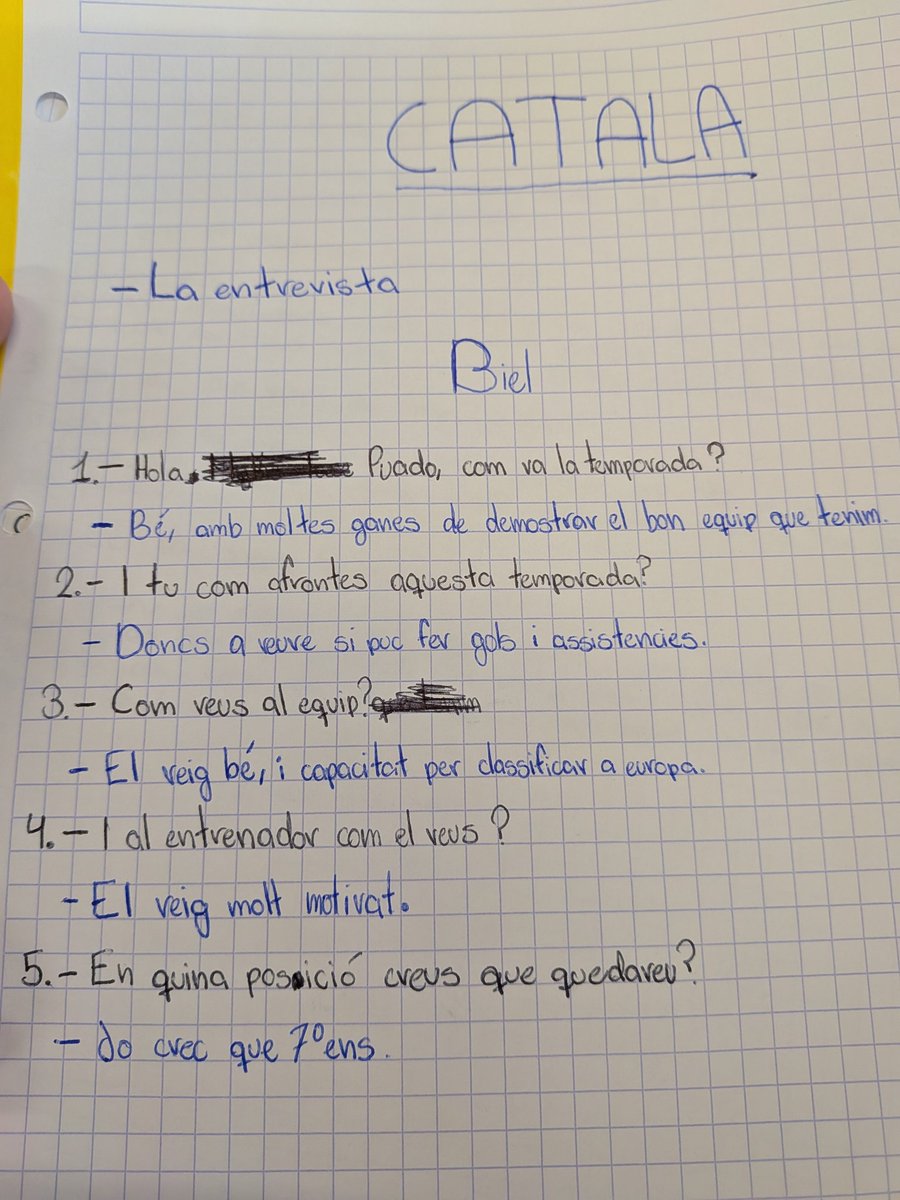 CATALA
- La entrevista
Biel
1.- Hola, Puado, com va la temporada?
- Bé, amb moltes ganes de demostrar el bon equip que tenim.
2.- I tu com afrontes aquesta temporada?
- Doncs a veure si puc fer gols i assistencies.
3.- Com veus al equip?
- El veig bé, i capacitat per classificar a europa.
4.- I al entrenador com el veus?
- El veig molt motivat.
5.- En quina posició creus que quedareu?
- Jo crec que 7º ens.